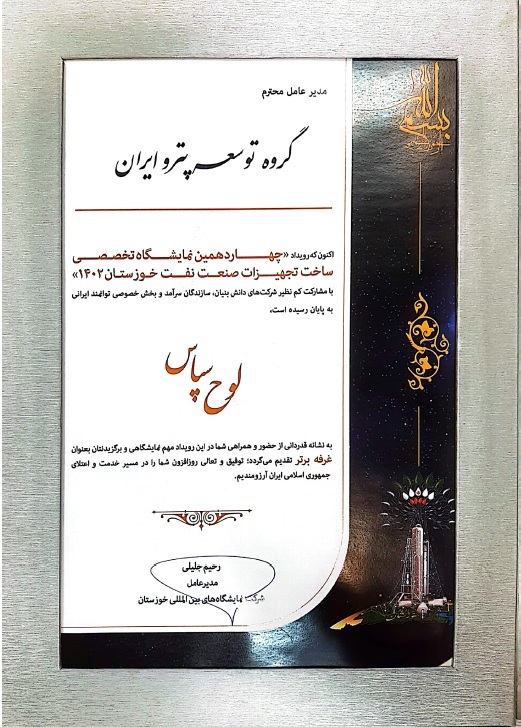 بسم الله الرحمن الرحیم
مدیر عامل محترم
گروه توسعه پترو ایران
اکنون که رویداد «چهاردهمین نمایشگاه تخصصی
ساخت تجهیزات صنعت نفت خوزستان ۱۴۰۲»
با مشارکت کم نظیر شرکت‌های دانش بنیان، سازندگان سرآمد و بخش خصوصی توانمند ایرانی
به پایان رسیده است،
لوح سپاس
به نشانه قدردانی از حضور و همراهی شما در این رویداد مهم نمایشگاهی و برگزیدنتان بعنوان
غرفه برتر تقدیم می‌گردد؛ توفیق و تعالی روزافزون شما را در مسیر خدمت و اعتلای
جمهوری اسلامی ایران آرزومندیم.
رحیم جلیلی
مدیرعامل
شرکت نمایشگاه‌های بین المللی خوزستان